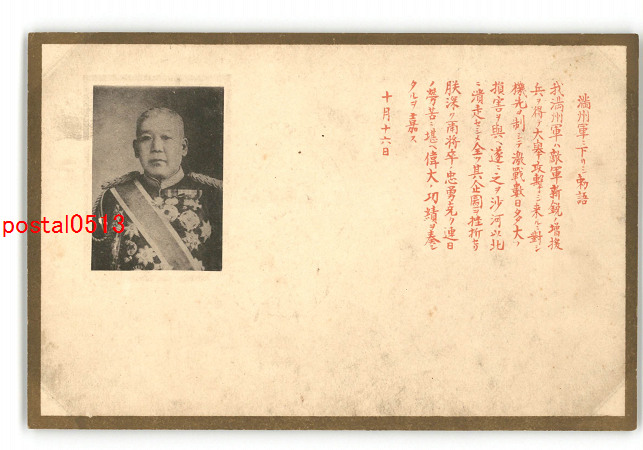 満州軍ニ下リシ勅語
我満州軍ハ敵軍新鋭ノ増援
兵ヲ得テ大擧攻擊シ来ルニ對シ
機先ヲ制シテ激戰數日多大ノ
損害ヲ與ヘ遂ニ之ヲ沙河以北
ニ潰走セシメ全ク其企圖ヲ挫折セリ
朕深ク爾将卒忠勇克ク連日
ノ労苦ニ堪ヘ偉大ノ功績ヲ奏シ
タルヲ嘉ス
十月十六日
postal0513